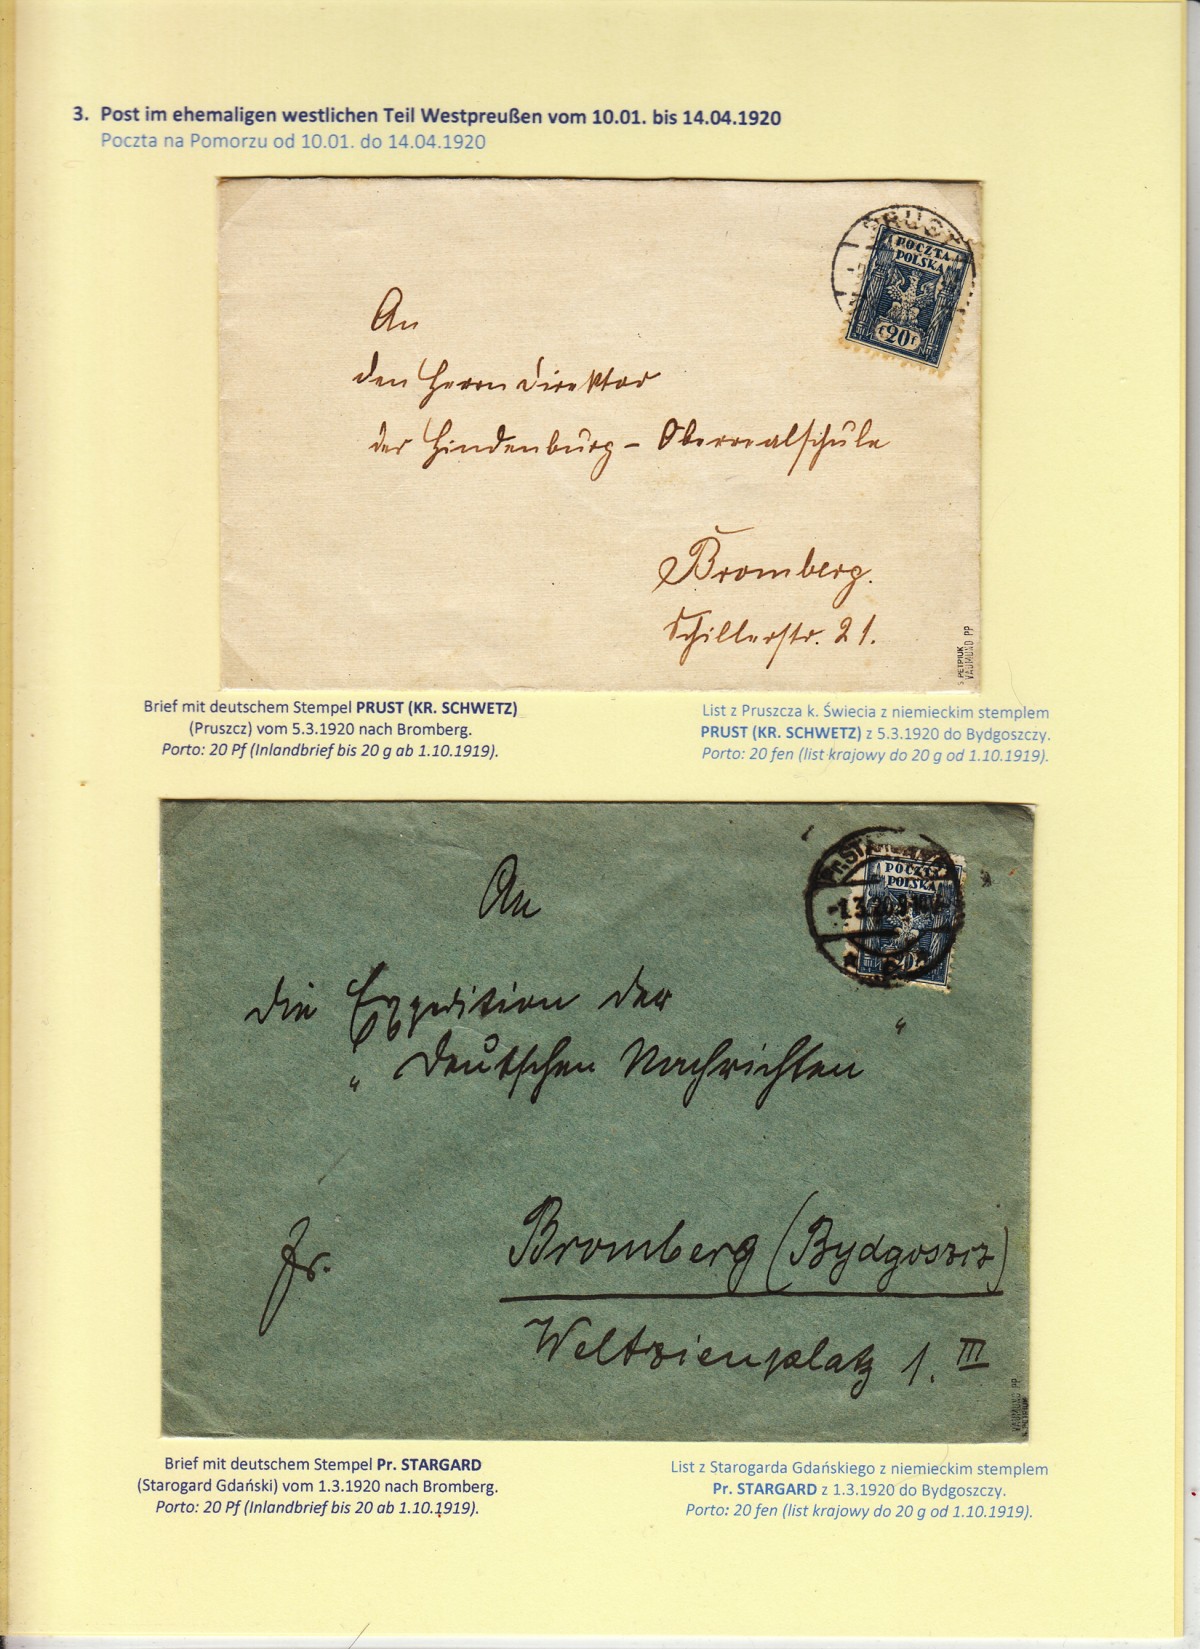 3. Post im ehemaligen westlichen Teil Westpreußen vom 10.01. bis 14.04.1920
Poczta na Pomorzu od 10.01. do 14.04.1920
PRUST
POCZTA
POLSKA
20
An
den Herrn Direktor
der Hindenburg - Oberrealschule
Bromberg.
Schillerstr. 21.
S. PETRIUK
VAUMUND PP
Brief mit deutschem Stempel PRUST (KR. SCHWETZ)
(Pruszcz) vom 5.3.1920 nach Bromberg.
Porto: 20 Pf (Inlandbrief bis 20 g ab 1.10.1919).
List z Pruszcza k. Świecia z niemieckim stemplem
PRUST (KR. SCHWETZ) z 5.3.1920 do Bydgoszczy.
Porto: 20 fen (list krajowy do 20 g od 1.10.1919).
Pr. STARGARD
POCZTA
POLSKA
An
die Expedition der
„Deutschen Nachrichten“
Bromberg (Bydgoszcz)
Weltzienplatz 1. III
VAUMUND PP
S. PETRIUK
Brief mit deutschem Stempel Pr. STARGARD
(Starogard Gdański) vom 1.3.1920 nach Bromberg.
Porto: 20 Pf (Inlandbrief bis 20 ab 1.10.1919).
List z Starogarda Gdańskiego z niemieckim stemplem
Pr. STARGARD z 1.3.1920 do Bydgoszczy.
Porto: 20 fen (list krajowy do 20 g od 1.10.1919).